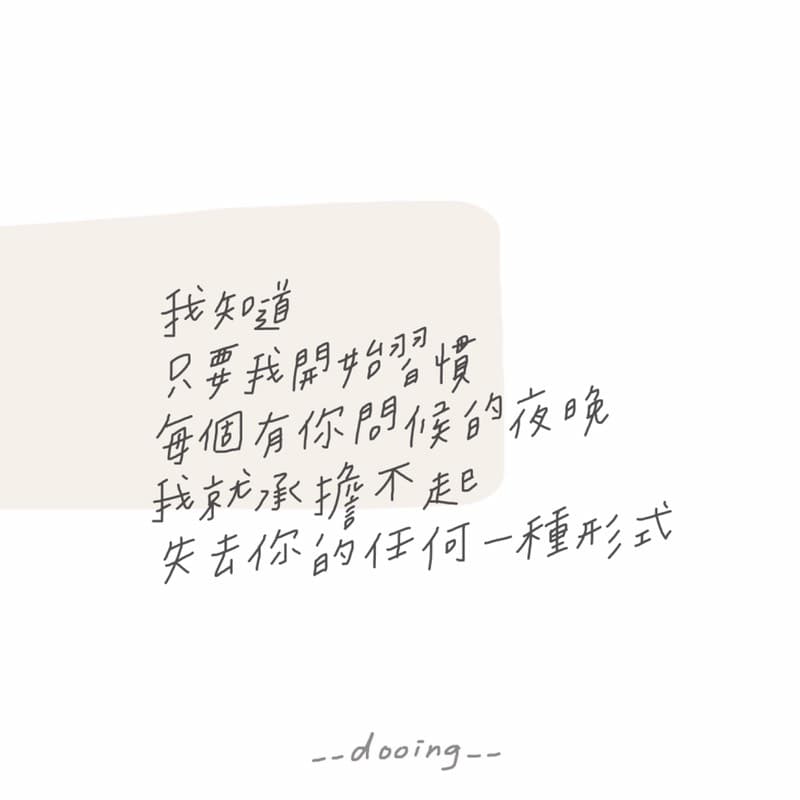 我知道
只要我開始習慣
每個有你問候的夜晚
我就承擔不起
失去你的任何一種形式
__dooing__